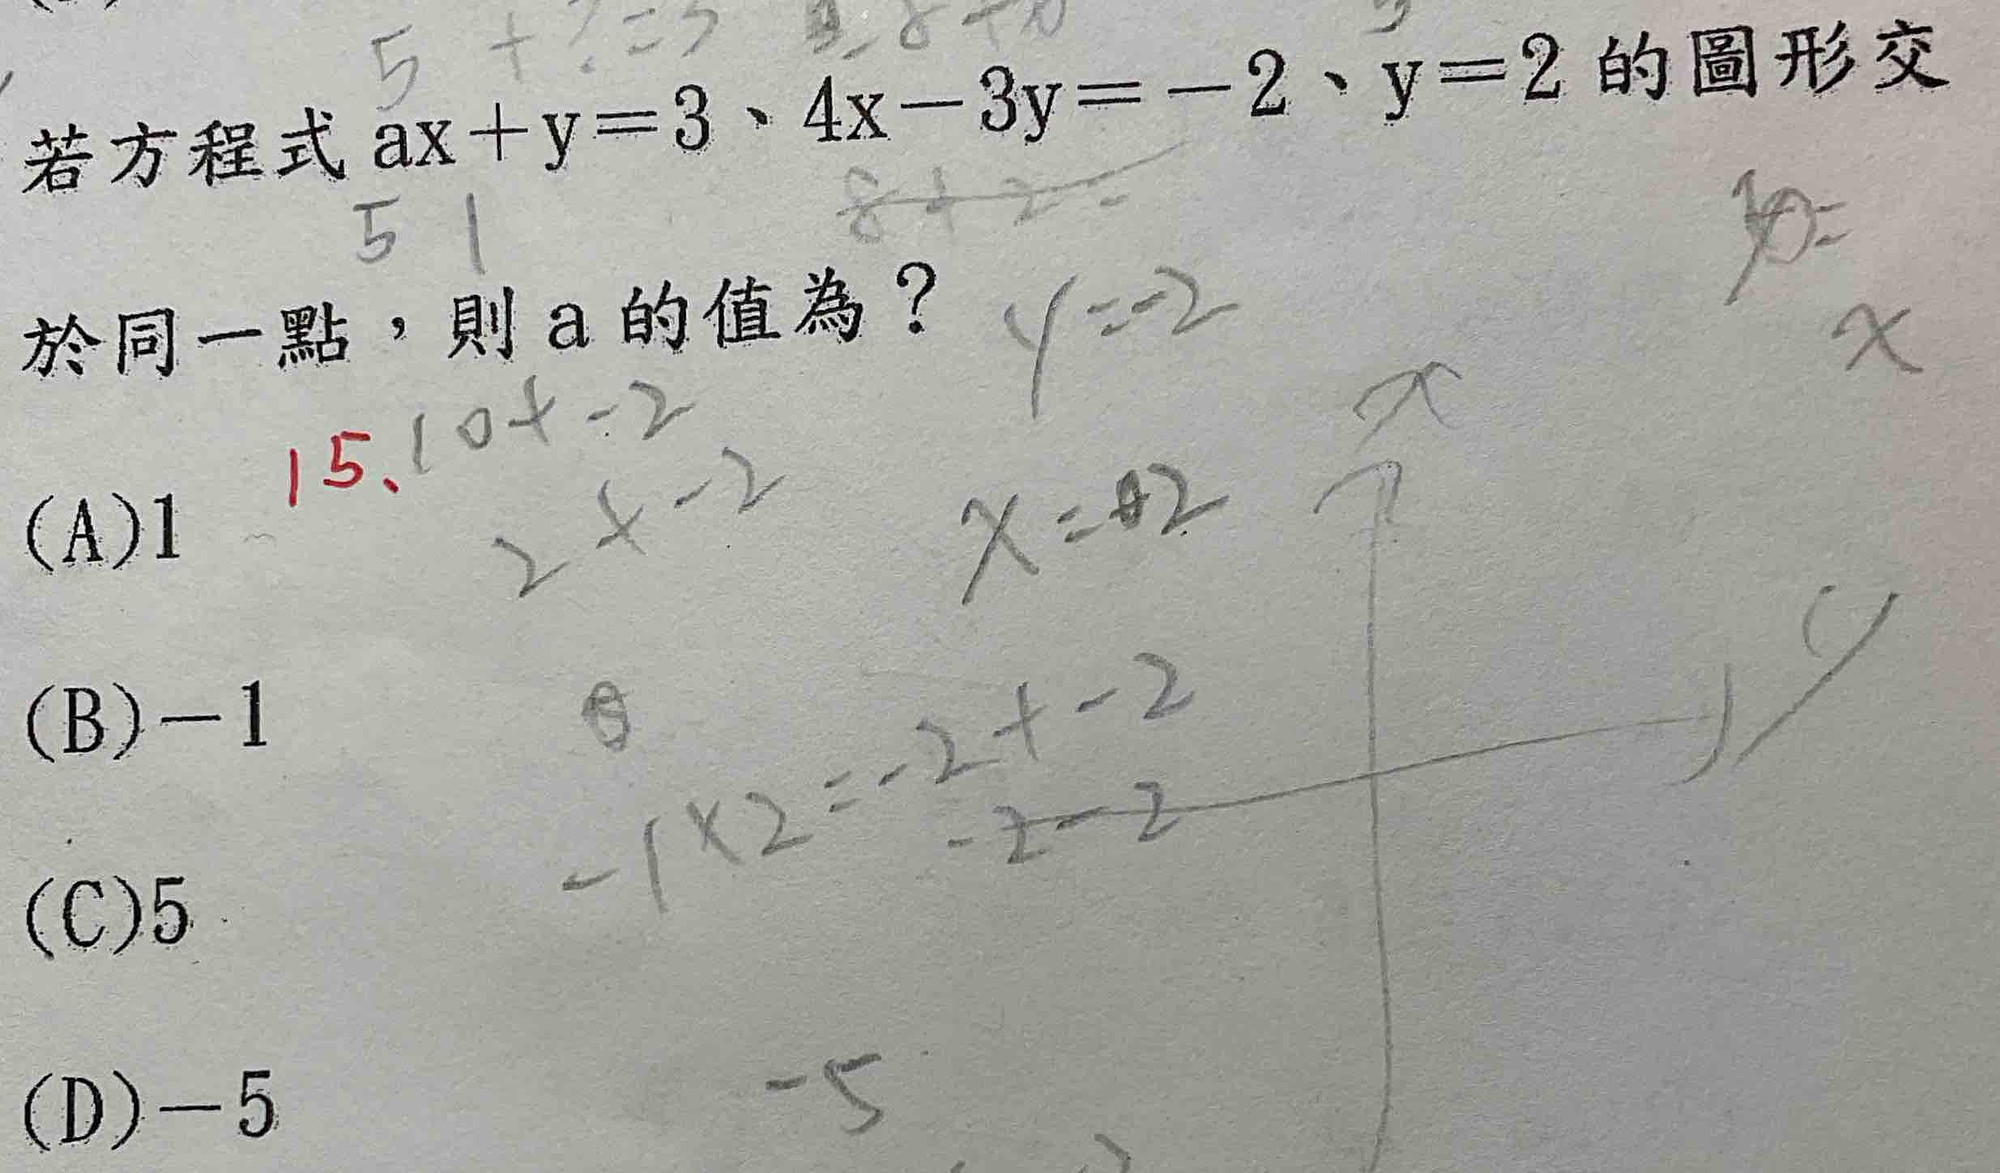 5 + ? = 3
若方程式 ax+y=3、4x-3y=-2、y=2 的圖形交
5 1
8+2=
於同一點，則 a 的值為？
y=-2
x
15、10+-2
x
(A)1
2+-2
x=2
y
(B)-1
-1×2=-2+-2
-2-2
(C)5
(D)-5
-5